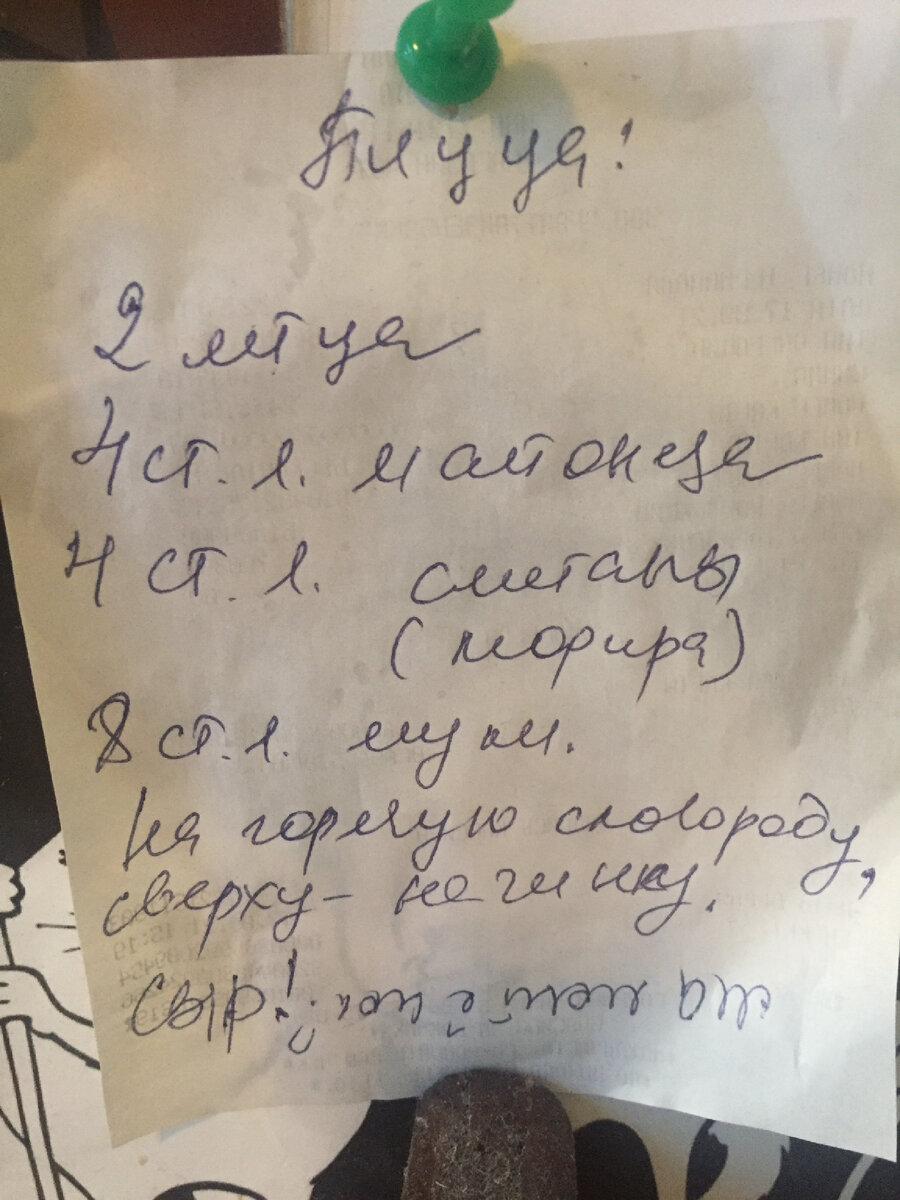 Пицца!
2 яйца
4 ст. л. майонеза
4 ст. л. сметаны
(кефира)
8 ст. л. муки.
На горячую сковороду,
сверху – начинку.
Сыр!